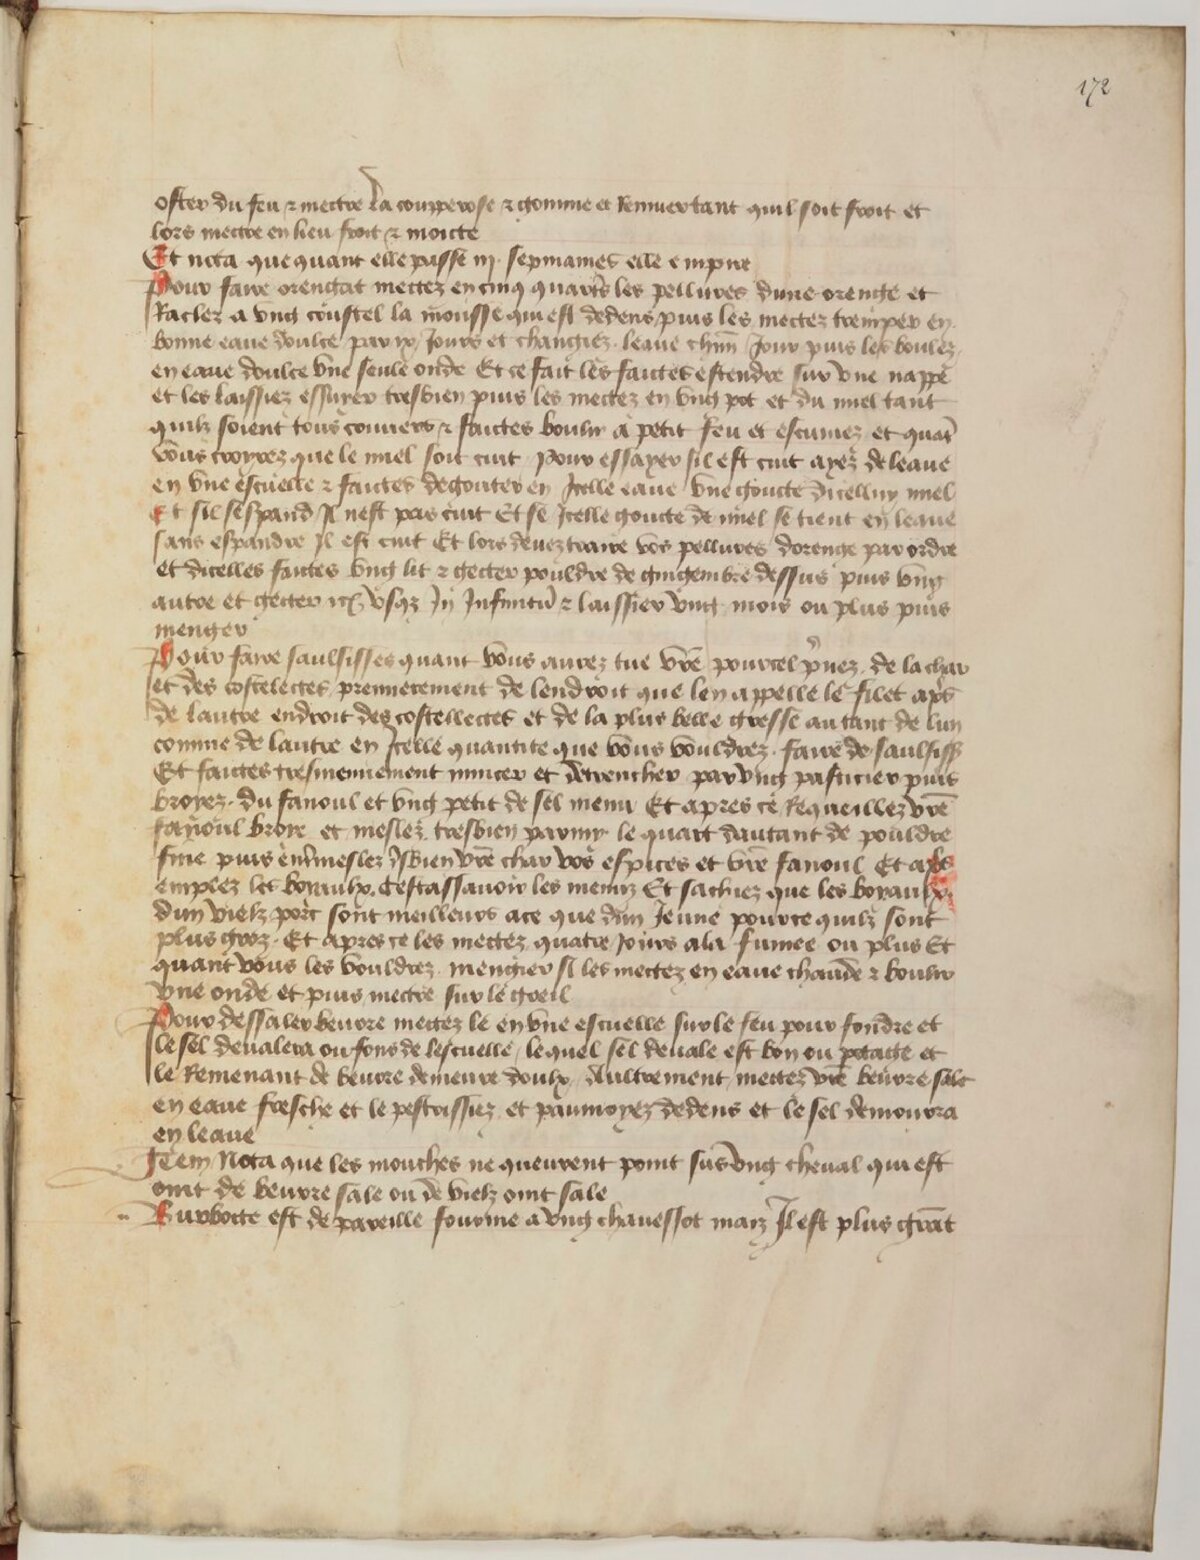 172
oster du feu & mectre la coupperose & gomme et Remuer tant quil soit froit et
lors mectre en lieu froit & moicte
Et nota que quant elle passe iij sepmaines elle empire
Pour faire orengat mettez en cinq quartrs les pellures dune orenge et
Raclez a ung coustel la mousse qui est dedens puis les mectez tremper en
bonne eaue doulce par ix Jours et changiez leaue chun Jour puis les boulez
en eaue doulce une seule onde Et ce fait les faictes estendre sur une nappe
et les laissiez essuyer tresbien puis les mectez en ung pot et du miel tant
quilz soient tous couvers & faictes boulir a petit feu et escumez et quat
vous croyrez que le miel soit cuit pour essayer sil est cuit ayez de leaue
en une escuelle & faictes degouter en Jcelle eaue une goucte dicelluy miel
Et sil sespand Jl nest pas cuit Et se Jcelle goucte de miel se tient en leaue
sans espandre Jl est cuit Et lors devez traire vos pellures dorenge par ordre
et dicelles faictes ung lit & gecter pouldre de gingembre dessus puis ung
autre et gecter usqz Jn Jnfinitu & laissier ung mois ou plus puis
menger
Pour faire saulsisses quant vous aurez tue vre pourcel pnez de la char
et des costelectes premierement de lendroit que len appelle le filet aps
de lautre endroit des costellectes et de la plus belle gresse autant de lun
comme de lautre en Jcelle quantite que vous vouldrez faire de saulsiss
Et faictes tresmenuement mincer et detrencher par ung pasticier puis
broyez du fanoul et ung petit de sel menu Et apres ce Requeillez vre
fanoul broye et meslez tresbien parmy le quart dautant de pouldre
fine puis entmeslez tsbien vre char vos espices et vre fanoul Et aps
emplez les boyaulx Cestassavoir les menuz Et sachiez que les boyaulx
dun vielz porc sont meilleurs a ce que dun Jeune pource quilz sont
plus groz Et apres ce les mectez quatre Jours a la fumee ou plus Et
quant vous les vouldrez mengier si les mectez en eaue chaude & boulir
une onde et puis mectre sur le greil
Pour dessaler beurre mectez le en une escuelle sur le feu pour fondre et
le sel devalera ou fons de lescuelle lequel sel devale est bon ou potaige et
le Remenant de beurre demeure doulx Aultrement mectez vre beurre sale
en eaue fresche et le pestrissiez et paumoyez dedens et le sel demourra
en leaue
Jtem Nota que les mouches ne queurent point sus ung cheval qui est
oint de beurre sale ou de vielz oint sale
Burbocte est de pareille fourme a ung chavessot maiz Jl est plus grat